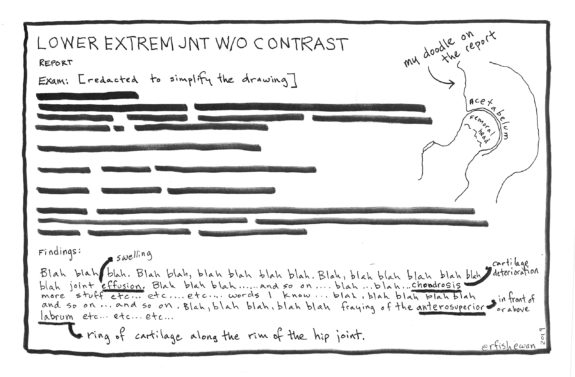 LOWER EXTREM JNT W/O CONTRAST
REPORT
Exam: [redacted to simplify the drawing]
my doodle on
the report
Acetabulum
Femoral
head
Findings:
swelling
Blah blah blah. Blah blah, blah blah blah blah. Blah, blah blah blah blah blah
cartilage
deterioration
blah joint effusion. Blah blah blah.....and so on.... blah ...blah...chondrosis
more stuff etc... etc.... etc.... words I know... blah, blah blah blah blah
and so on ...and so on. Blah, blah blah, blah blah fraying of the anterosuperior
in front of
or above
labrum etc... etc... etc...
ring of cartilage along the rim of the hip joint.
erfishewan
2019